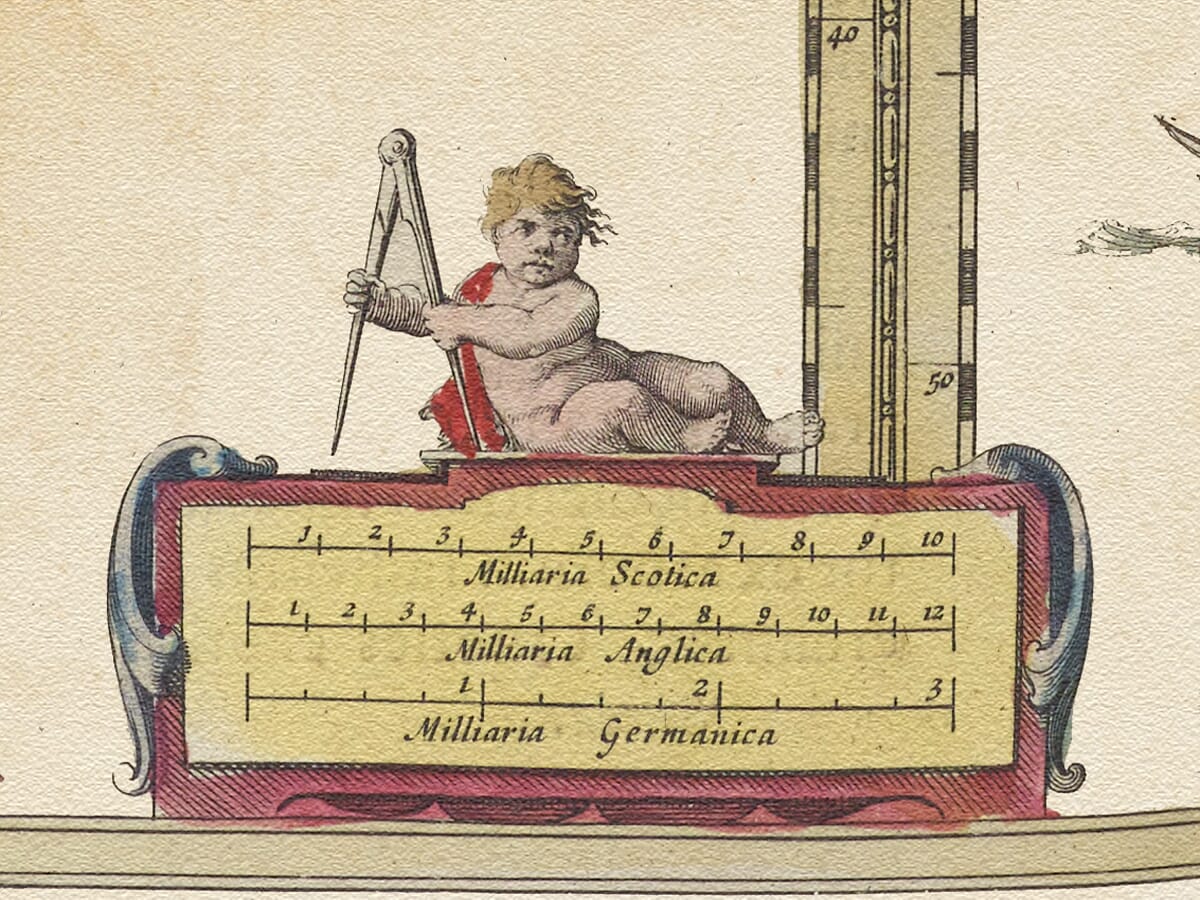 40
50
1 2 3 4 5 6 7 8 9 10
Milliaria Scotica
1 2 3 4 5 6 7 8 9 10 11 12
Milliaria Anglica
1 2 3
Milliaria Germanica